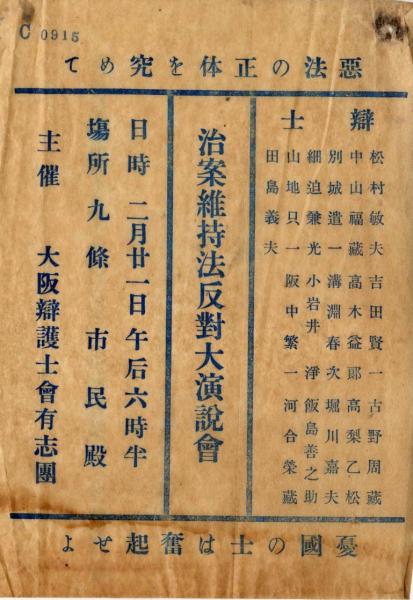 C 0915
悪法の正体を究めて
辯士
松村敏夫 吉田賢一 古野周藏
中山福藏 高木益郎 高梨乙松
別城遺一 溝淵春次 堀川嘉夫
細迫兼光 小岩井淨 飯島善之助
山地只一 阪中繁一 河合榮藏
田島義夫
治案維持法反對大演説會
日時 二月廿一日午后六時半
塲所 九條市民殿
主催 大阪辯護士會有志團
憂國の士は奮起せよ